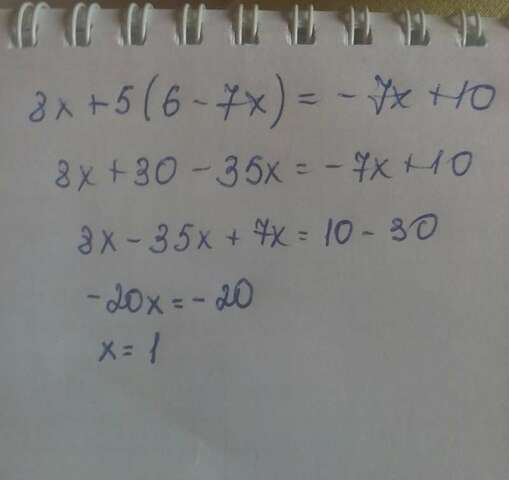 8x + 5(6 - 7x) = - 7x + 10
8x + 30 - 35x = - 7x + 10
8x - 35x + 7x = 10 - 30
-20x = - 20
x = 1